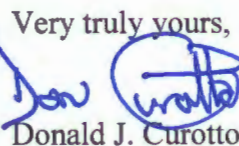 Very truly yours,
Don Curotto
Donald J. Curotto